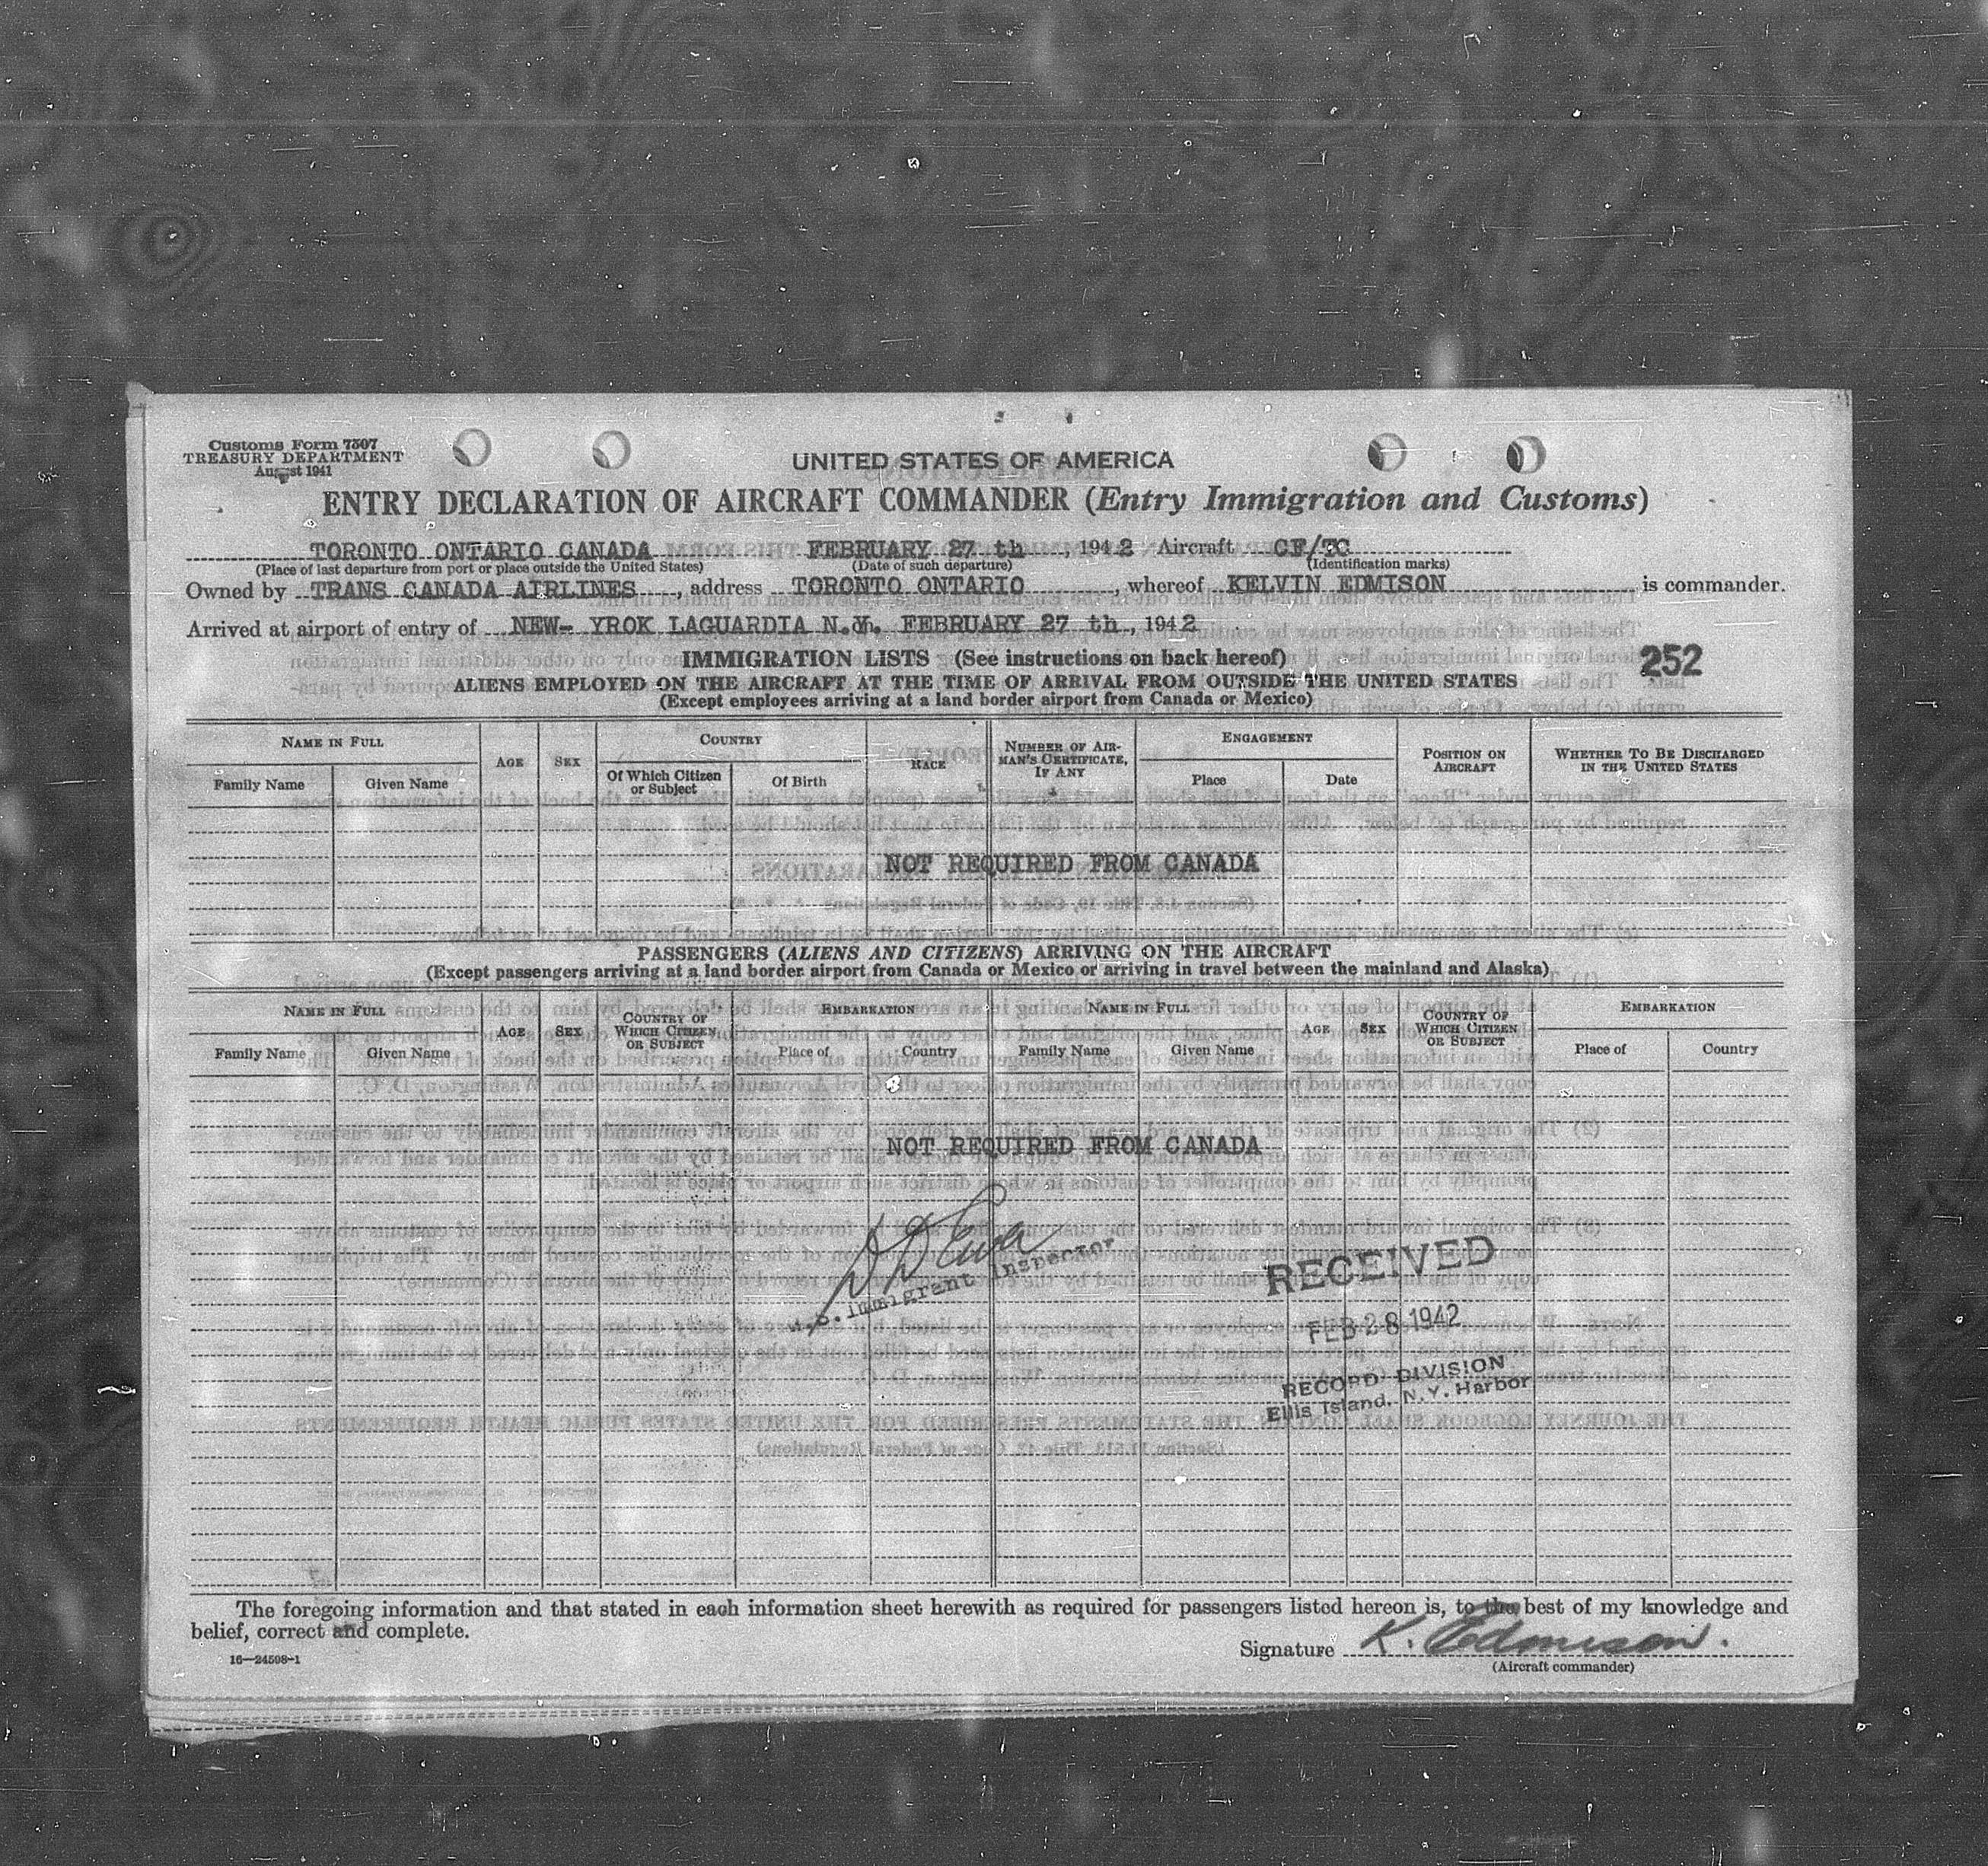 Customs Form 7507
TREASURY DEPARTMENT
August 1941
UNITED STATES OF AMERICA
ENTRY DECLARATION OF AIRCRAFT COMMANDER (Entry Immigration and Customs)
TORONTO ONTARIO CANADA FEBRUARY 27 th, 1942 Aircraft
(Place of last departure from port or place outside the United States) (Date of such departure) (Identification marks)
Owned by TRANS CANADA AIRLINES, address TORONTO ONTARIO, whereof KELVIN EDMISON is commander.
Arrived at airport of entry of NEW- YROK LAGUARDIA N.Y. FEBRUARY 27 th, 1942
252
IMMIGRATION LISTS (See instructions on back hereof)
ALIENS EMPLOYED ON THE AIRCRAFT AT THE TIME OF ARRIVAL FROM OUTSIDE THE UNITED STATES
(Except employees arriving at a land border airport from Canada or Mexico)
NAME IN FULL
Family Name Given Name
AGE
SEX
COUNTRY
Of Which Citizen
or Subject
Of Birth
RACE
NUMBER OF AIR-
MAN'S CERTIFICATE,
IF ANY
ENGAGEMENT
Place Date
POSITION ON
AIRCRAFT
WHETHER TO BE DISCHARGED
IN THE UNITED STATES
NOT REQUIRED FROM CANADA
PASSENGERS (ALIENS AND CITIZENS) ARRIVING ON THE AIRCRAFT
(Except passengers arriving at a land border airport from Canada or Mexico or arriving in travel between the mainland and Alaska)
NAME IN FULL
Family Name Given Name
AGE
SEX
COUNTRY OF
WHICH CITIZEN
OR SUBJECT
EMBARKATION
Place of Country
NAME IN FULL
Family Name Given Name
AGE
SEX
COUNTRY OF
WHICH CITIZEN
OR SUBJECT
EMBARKATION
Place of Country
NOT REQUIRED FROM CANADA
U.S. Immigrant Inspector
RECEIVED
FEB 28 1942
RECORD DIVISION
Ellis Island, N.Y. Harbor
The foregoing information and that stated in each information sheet herewith as required for passengers listed hereon is, to the best of my knowledge and
belief, correct and complete.
Signature K. Edmison.
(Aircraft commander)
16—24598-1